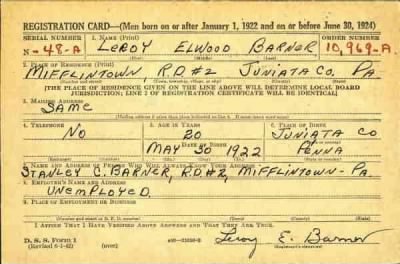 REGISTRATION CARD—(Men born on or after January 1, 1922 and on or before June 30, 1924)
SERIAL NUMBER 1. NAME (Print) ORDER NUMBER
N-48-A LEROY ELWOOD BARNER 10,969-A
(First) (Middle) (Last)
2. PLACE OF RESIDENCE (Print)
MIFFLINTOWN, R.D.#2 JUNIATA CO. PA.
(Number and street) (Town, township, village, or city) (County) (State)
[THE PLACE OF RESIDENCE GIVEN ON THE LINE ABOVE WILL DETERMINE LOCAL BOARD
JURISDICTION; LINE 2 OF REGISTRATION CERTIFICATE WILL BE IDENTICAL]
3. MAILING ADDRESS
SAME
4. TELEPHONE 5. AGE IN YEARS 6. PLACE OF BIRTH
NO 20 JUNIATA CO
DATE OF BIRTH
MAY 30 1922 PENNA
7. NAME AND ADDRESS OF PERSON WHO WILL ALWAYS KNOW YOUR ADDRESS
STANLEY C. BARNER, R.D.#2, MIFFLINTOWN- PA.
8. EMPLOYER'S NAME AND ADDRESS
UNEMPLOYED.
9. PLACE OF EMPLOYMENT OR BUSINESS
I AFFIRM THAT I HAVE VERIFIED ABOVE ANSWERS AND THAT THEY ARE TRUE.
D. S. S. Form 1
(Revised 6-1-42) (over) Leroy E. Barner